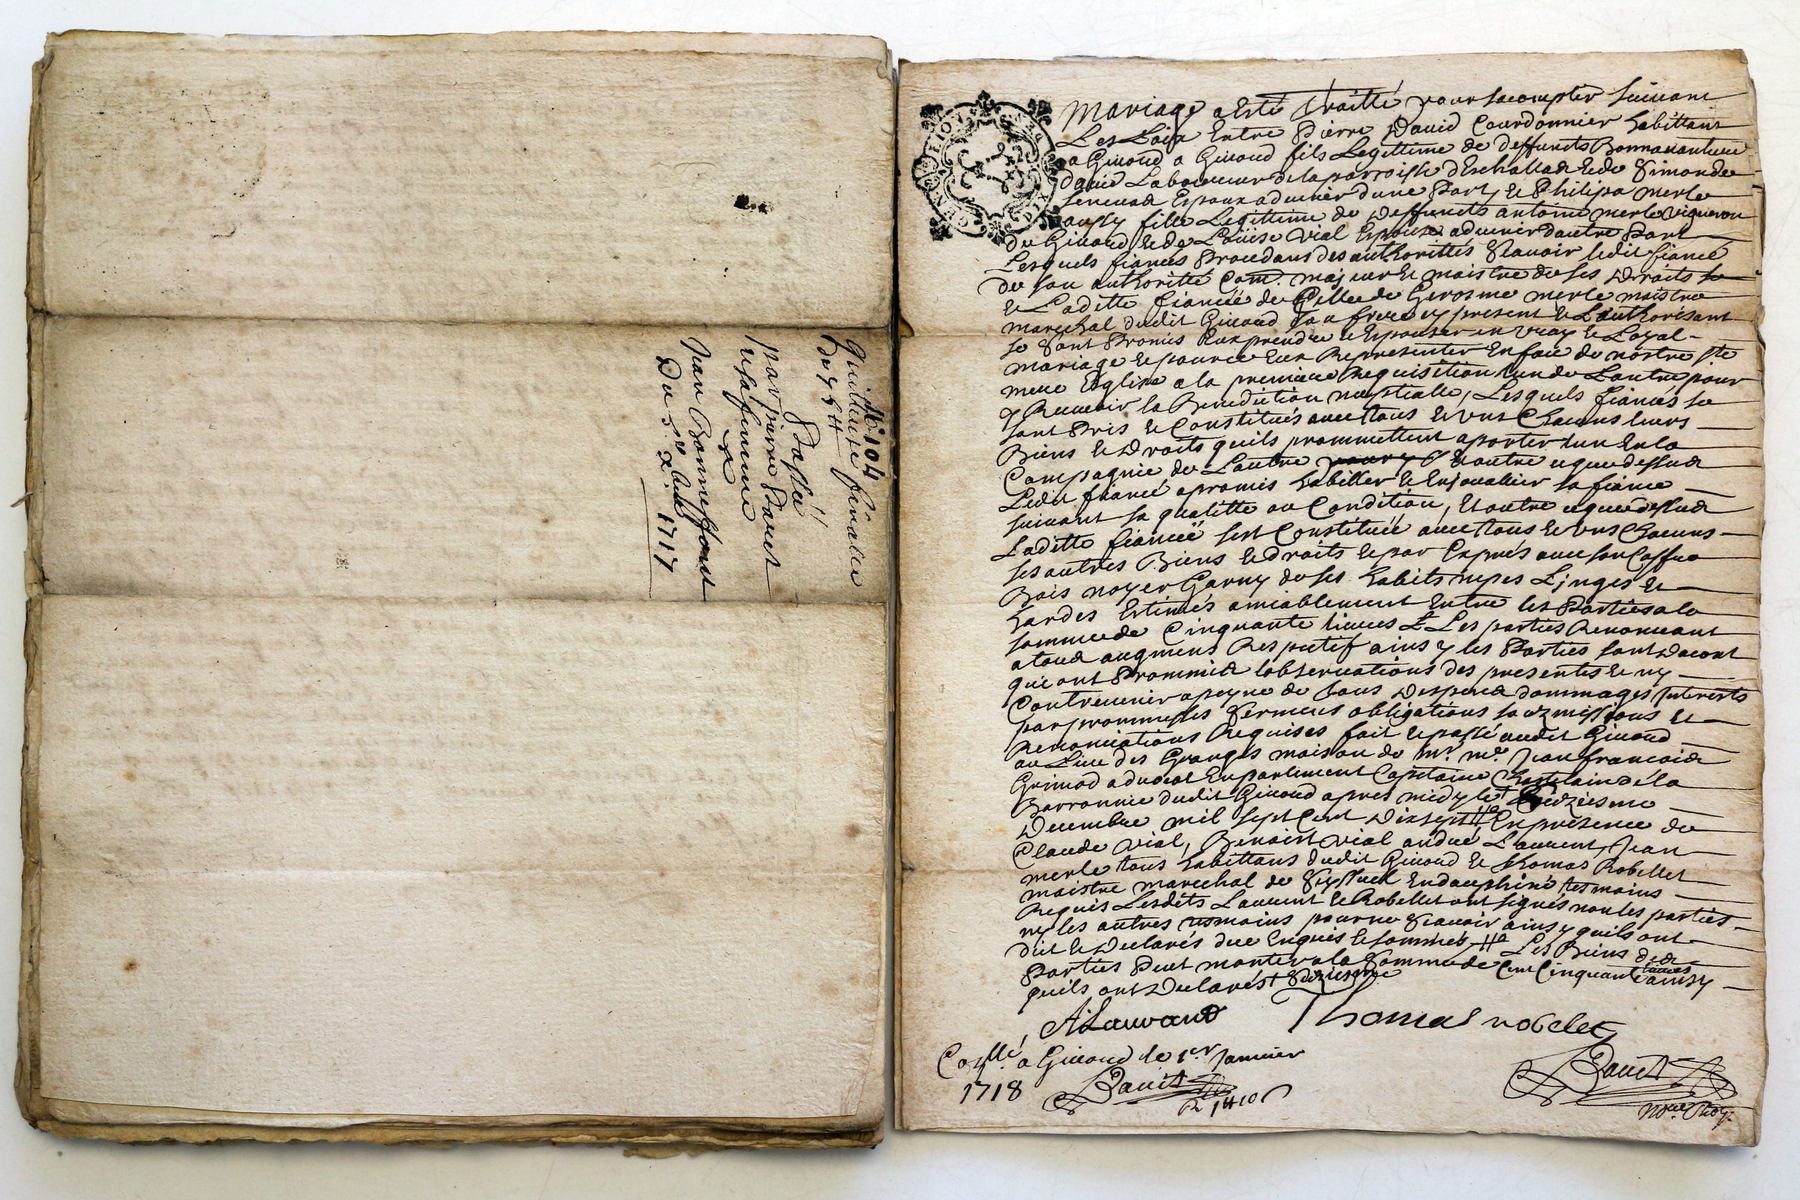 N° 104
Quittance finalle
de 75 ᴴ
Passée
par pierre Dauet
Jean Bonneffont
Du 5e 1717
Mariage a Esté Traitté pour sacomplir suiuant
Les Loix Entre Pierre Dauid Courdonnier habittant
a Giuord a Giuord fils Legittime de deffuncts Bonnauanture
Dauid Laboureur de la parroisse dEschallad et de Simonde
Espoux aduenir dune Part, Et Philipa merle
aussy fille Legittime de Deffuncts antoine merle vigneron
de Giuord et de Loüise vial Espouze aduenir dautre Part
Lesquels fiancés Procedans des authorittés Scauoir ledit fiancé
de son authoritté Com. majeur et maistre de ses Droits
et Laditte fiancée de Celle de Gerosme merle maistre
marechal dudit Giuord son frere cy present et Lauthorisant
se sont Promis Eux prendre et Espouser en vray et Loyal
mariage et pource Eux Representer En face de nostre Ste
mere Esglise a la premiere Requisition lun de Lautre pour
y Receuoir la Benediction nuptialle, Lesquels fiancés se
sont Pris et Constitués auec tous et vns Chacuns leurs
Biens et Droits quils promettent aporter lun En la
Compagnie de Lautre Et outre ce que dessus
Ledit fiancé a promis habiller et Enjouailler sa fiancé
suiuant sa qualitte ou Condition, Et outre ce que dessus
Laditte fianceé sest Constituée auec tous et vns Chacuns
ses autres Biens et droits et par Exprés auec son Coffre
Bois noyer Garny de ses habits nipes Linges et
hardes Estimés amiablement Entre les Parties a la
somme de Cinquante liures Les parties Renonceant
a tous augmens Respectif ainsy les Parties sont dacort
qui ont Prommis lobseruations des presentes et ny
Contreuenir a peyne de tous Despens dommages Interests
par prommesses Sermens obligations soubzmissions et
Renonciations Requises fait et passé audit Giuord
au Lieu des Granges maison de mr. me. Jean francois
Grimod aduocat En parlement Capitaine Chastelain de la
Barronnie dudit Giuord apres midy le
Decembre mil sept Cent Dixsept En presence de
Claude vial, Benoist vial andré Laurent, Jean
merle tous habittans dudit Giuord et Thomas Robellet
maistre marechal de En dauphiné tesmoins
Requis Lesdits Laurent et Robellet ont signés non les parties
ny les autres tesmoins pour ne Scauoir ainsy quils ont
dit et Declarés de ce Enquis et sommés Les Biens des
Parties Peut monter a la Somme de Cent Cinquante liures ainsy
quils ont Declarés
A Laurand
Thomas robelet
Conllé. a Giuord le 1er Januier
1718
Dauet
R 14 10
Dauet
Nore. Roy.